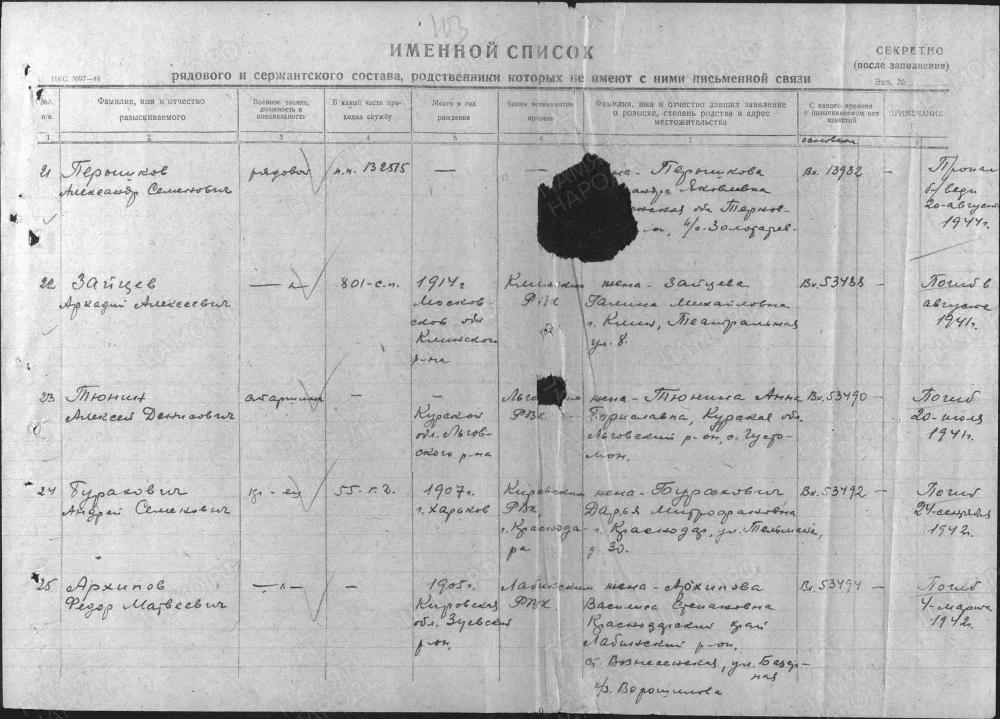 103
ИМЕННОЙ СПИСОК
СЕКРЕТНО
(после заполнения)
Экз. №
рядового и сержантского состава, родственники которых не имеют с ними письменной связи
№№ п/п.
Фамилия, имя и отчество разыскиваемого
Военное звание, должность и специальность
В какой части проходил службу
Место и год рождения
Каким военкоматом призван
Фамилия, имя и отчество давших заявление о розыске, степень родства и адрес местожительства
С какого времени о разыскиваемом нет известий
ПРИМЕЧАНИЕ
1 2 3 4 5 6 7
основание
21 Перышков
Александр Семенович
рядовой
п.п. 132515
—
—
Перышкова
Яковлевна
обл. Тернов-
Вх. 13982 —
Пропал
б/вести
20-август
1944г.
22 Зайцев
Аркадий Алексеевич
— " —
801-с.п.
1914г
Москов-
ской обл
Клинского
р-на
Клинским
РВК
жена - Зайцева
Галина Михайловна
г. Клин, Театральная
ул. 8.
Вх. 53488 —
Погиб в
августе
1941г.
23 Тюнин
Алексей Денисович
старшина
—
—
Курской
обл. Льгов-
ского р-на
РВК
жена - Тюнина Анна
Бориславна, Курская обл.
Льговский р-он, с. Густо-
мой.
Вх. 53490 —
Погиб
20-июля
1941г.
24 Буракович
Андрей Семенович
кр-ец
55. г.д.
1907г.
г. Харьков
Кировским
РВК
г. Краснода-
ра
жена - Буракович
Дарья Митрофановна
г. Краснодар, ул. Тельмана,
д 30.
Вх. 53492 —
Погиб
24-сентября
1942г.
25 Архипов
Федор Матвеевич
— " —
—
1905г.
Кировская
обл. Зуевский
р-он.
Лабинским
РВК
жена - Архипова
Василиса Степановна
Краснодарский край
Лабинский р-он.
ст. Вознесенская, ул. Базар-
ная
к/з. Ворошилова
Вх. 53494 —
Погиб
4-марта
1942г.